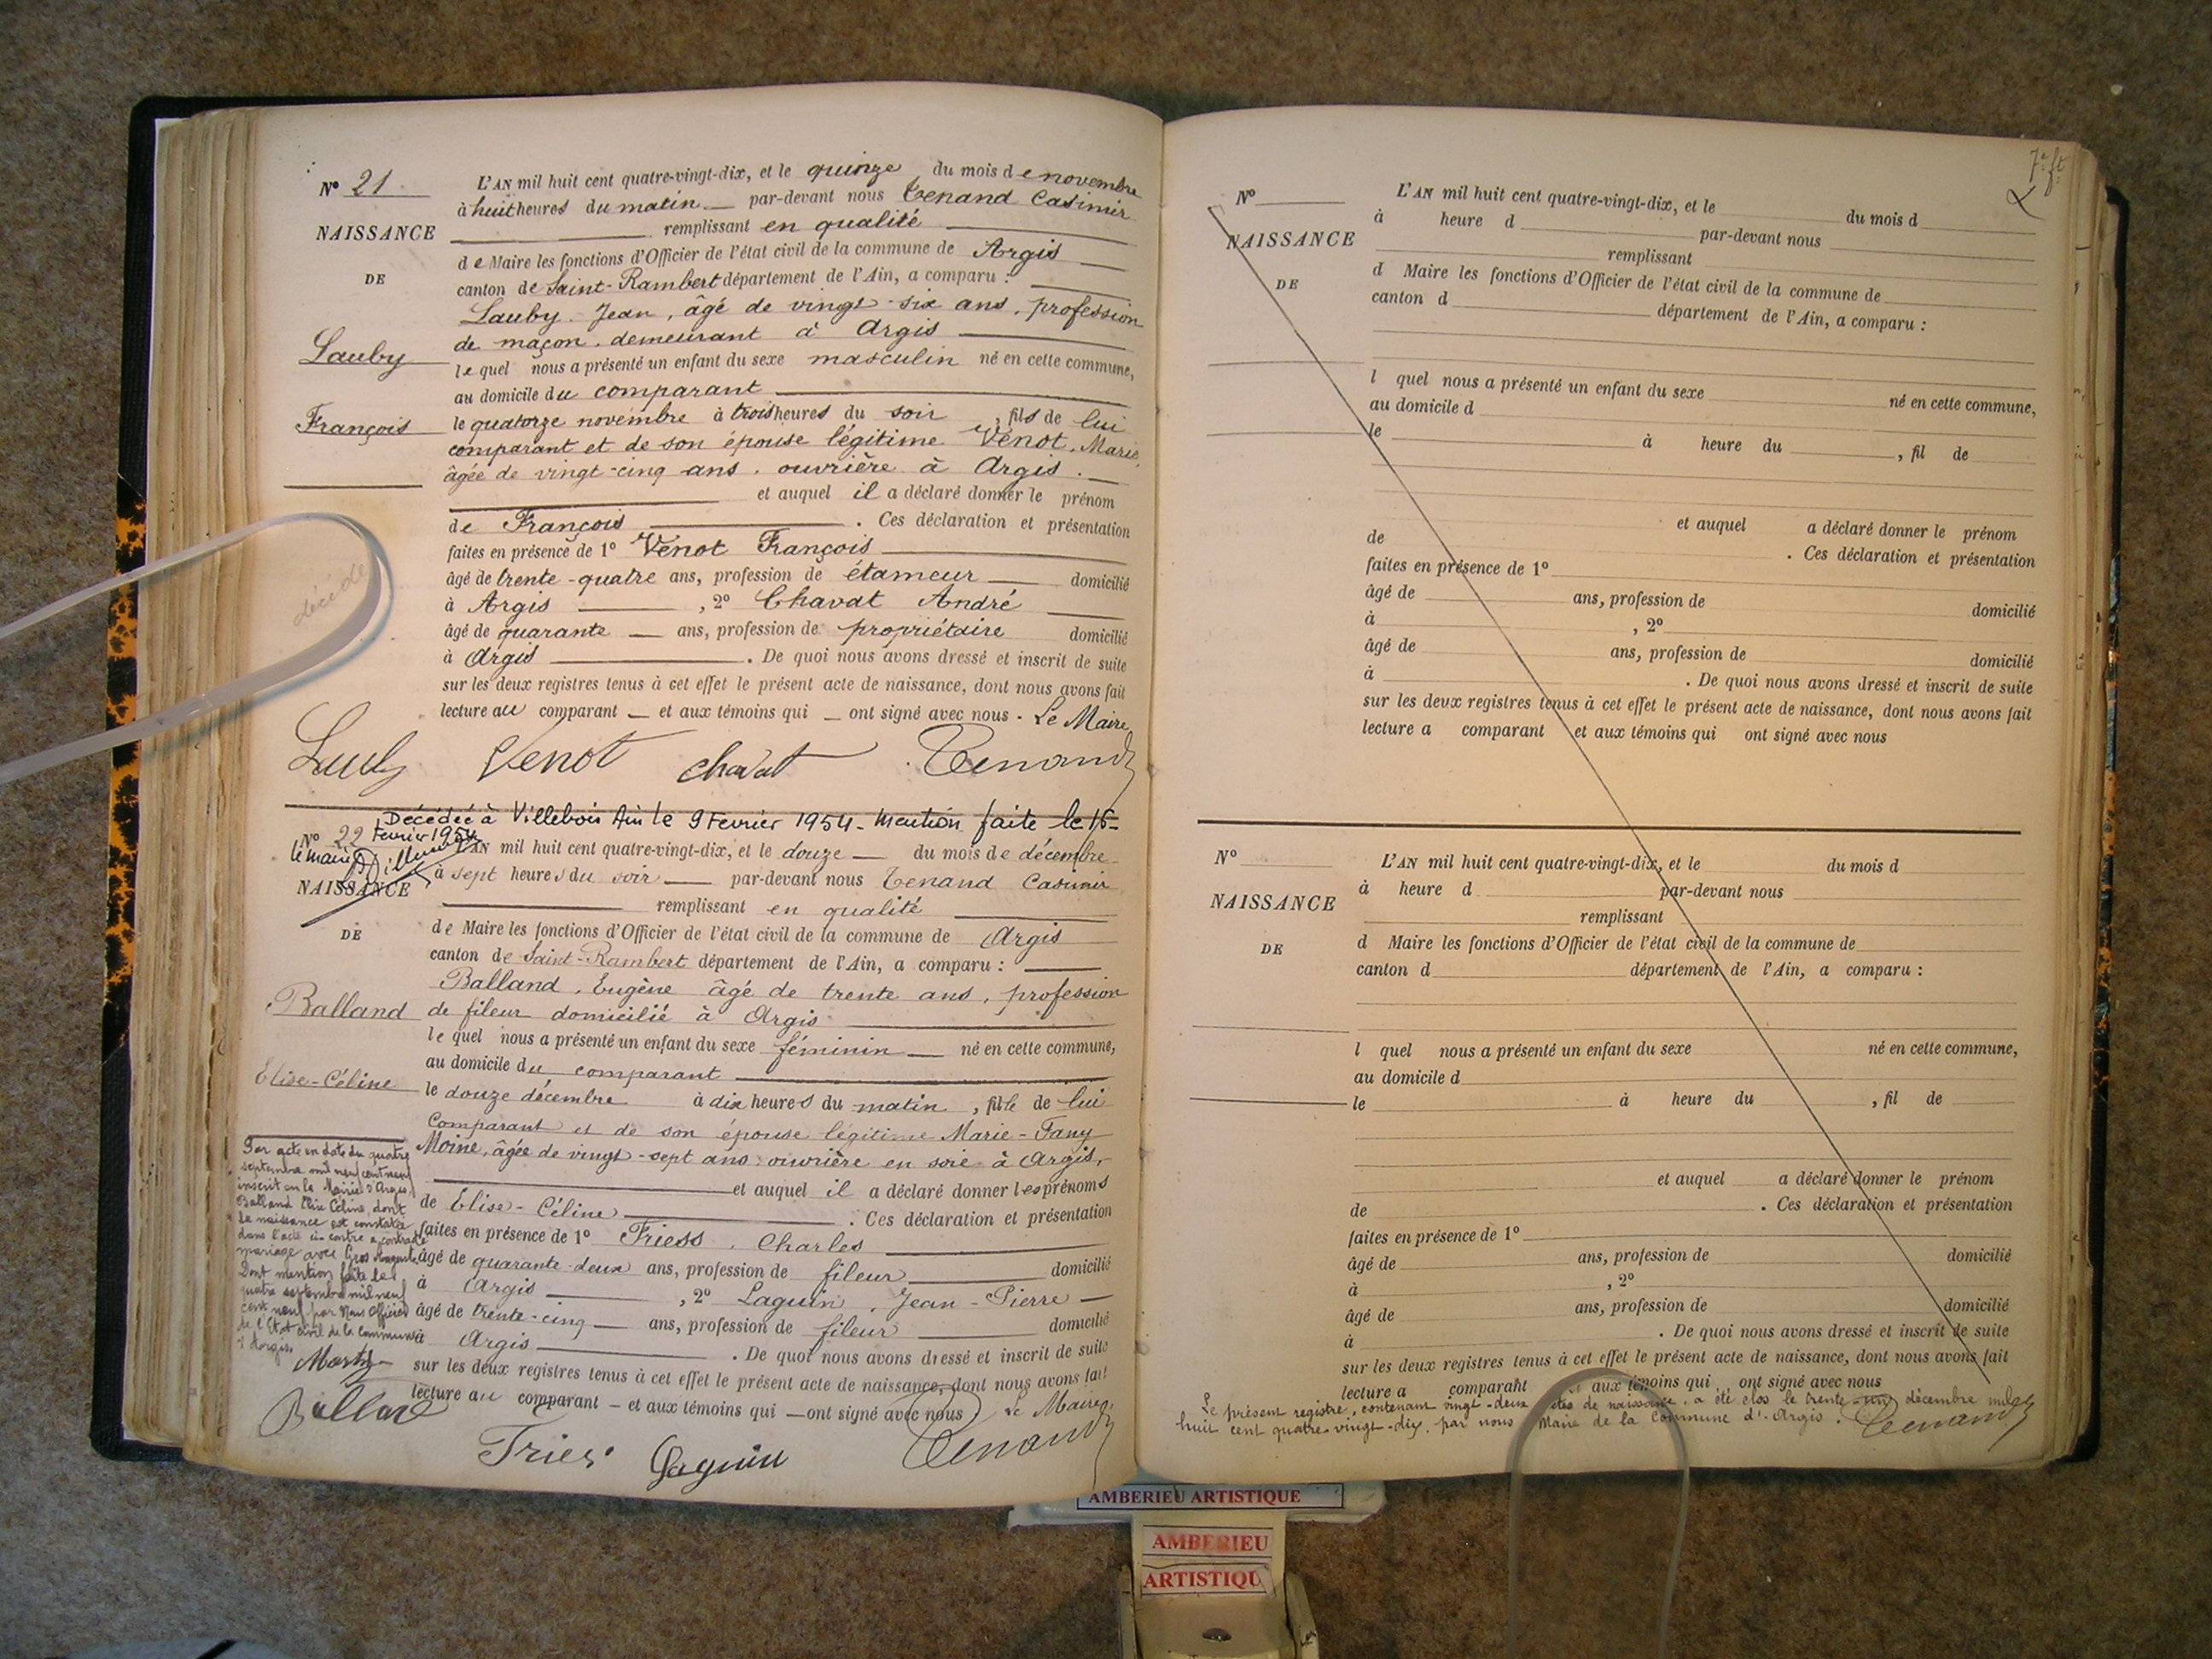 Nº 21
NAISSANCE
DE
Lauby
François
L'AN mil huit cent quatre-vingt-dix, et le quinze du mois de novembre
à huit heures du matin — par-devant nous Tenand Casimir
remplissant en qualité
de Maire les fonctions d'Officier de l'état civil de la commune de Argis
canton de Saint-Rambert département de l'Ain, a comparu :
Lauby Jean, âgé de vingt-six ans, profession
de maçon, demeurant à Argis
lequel nous a présenté un enfant du sexe masculin né en cette commune,
au domicile du comparant
le quatorze novembre à trois heures du soir, fils de lui
comparant et de son épouse légitime Venot, Marie,
âgée de vingt-cinq ans, ouvrière à Argis.
et auquel il a déclaré donner le prénom
de François. Ces déclaration et présentation
faites en présence de 1º Venot François
âgé de trente-quatre ans, profession de étameur domicilié
à Argis, 2º Chavat André
âgé de quarante ans, profession de propriétaire domicilié
à Argis. De quoi nous avons dressé et inscrit de suite
sur les deux registres tenus à cet effet le présent acte de naissance, dont nous avons fait
lecture au comparant — et aux témoins qui — ont signé avec nous. Le Maire,
décédé
Venot Chavat Tenand
Décédée à Villebois Ain le 9 Fevrier 1954 - Mention faite le 15
Fevrier 1954
le maire
Nº 22
NAISSANCE
DE
Balland
Elise-Céline
L'AN mil huit cent quatre-vingt-dix, et le douze — du mois de décembre
à sept heures du soir — par-devant nous Tenand Casimir
remplissant en qualité
de Maire les fonctions d'Officier de l'état civil de la commune de Argis
canton de Saint-Rambert département de l'Ain, a comparu :
Balland, Eugène âgé de trente ans, profession
de fileur domicilié à Argis
lequel nous a présenté un enfant du sexe féminin — né en cette commune,
au domicile du comparant
le douze décembre à dix heures du matin, fille de lui
comparant et de son épouse légitime Marie-Fany
Moine, âgée de vingt-sept ans, ouvrière en soie à Argis,
et auquel il a déclaré donner les prénoms
de Elise-Céline. Ces déclaration et présentation
faites en présence de 1º Friess, Charles
âgé de quarante-deux ans, profession de fileur domicilié
à Argis, 2º Laguin, Jean-Pierre
âgé de trente-cinq ans, profession de fileur domicilié
à Argis. De quoi nous avons dressé et inscrit de suite
sur les deux registres tenus à cet effet le présent acte de naissance, dont nous avons fait
lecture au comparant — et aux témoins qui — ont signé avec nous Le Maire,
Par acte en date du quatre
septembre mil neuf cent neuf
inscrit en la Mairie d'Argis,
Balland Elise Céline, dont
la naissance est constatée
dans l'acte ci-contre a contracté
mariage avec Gros
Dont mention faite le
quatre septembre mil neuf
cent neuf par Nous Officier
de l'Etat civil de la commune
d'Argis.
Balland
Tenand
7e ft
Nº
NAISSANCE
DE
L'AN mil huit cent quatre-vingt-dix, et le du mois d
à heure d par-devant nous
remplissant
d Maire les fonctions d'Officier de l'état civil de la commune de
canton d département de l'Ain, a comparu :
l quel nous a présenté un enfant du sexe né en cette commune,
au domicile d
le à heure du , fil de
et auquel a déclaré donner le prénom
de . Ces déclaration et présentation
faites en présence de 1º
âgé de ans, profession de domicilié
à , 2º
âgé de ans, profession de domicilié
à . De quoi nous avons dressé et inscrit de suite
sur les deux registres tenus à cet effet le présent acte de naissance, dont nous avons fait
lecture a comparant et aux témoins qui ont signé avec nous
Nº
NAISSANCE
DE
L'AN mil huit cent quatre-vingt-dix, et le du mois d
à heure d par-devant nous
remplissant
d Maire les fonctions d'Officier de l'état civil de la commune de
canton d département de l'Ain, a comparu :
l quel nous a présenté un enfant du sexe né en cette commune,
au domicile d
le à heure du , fil de
et auquel a déclaré donner le prénom
de . Ces déclaration et présentation
faites en présence de 1º
âgé de ans, profession de domicilié
à , 2º
âgé de ans, profession de domicilié
à . De quoi nous avons dressé et inscrit de suite
sur les deux registres tenus à cet effet le présent acte de naissance, dont nous avons fait
lecture a comparant et aux témoins qui ont signé avec nous
Le présent registre, contenant vingt-deux actes de naissance, a été clos le trente-un décembre mil
huit cent quatre-vingt-dix, par nous Maire de la Commune d'Argis. Tenand
AMBERIEU ARTISTIQUE
AMBERIEU
ARTISTIQU